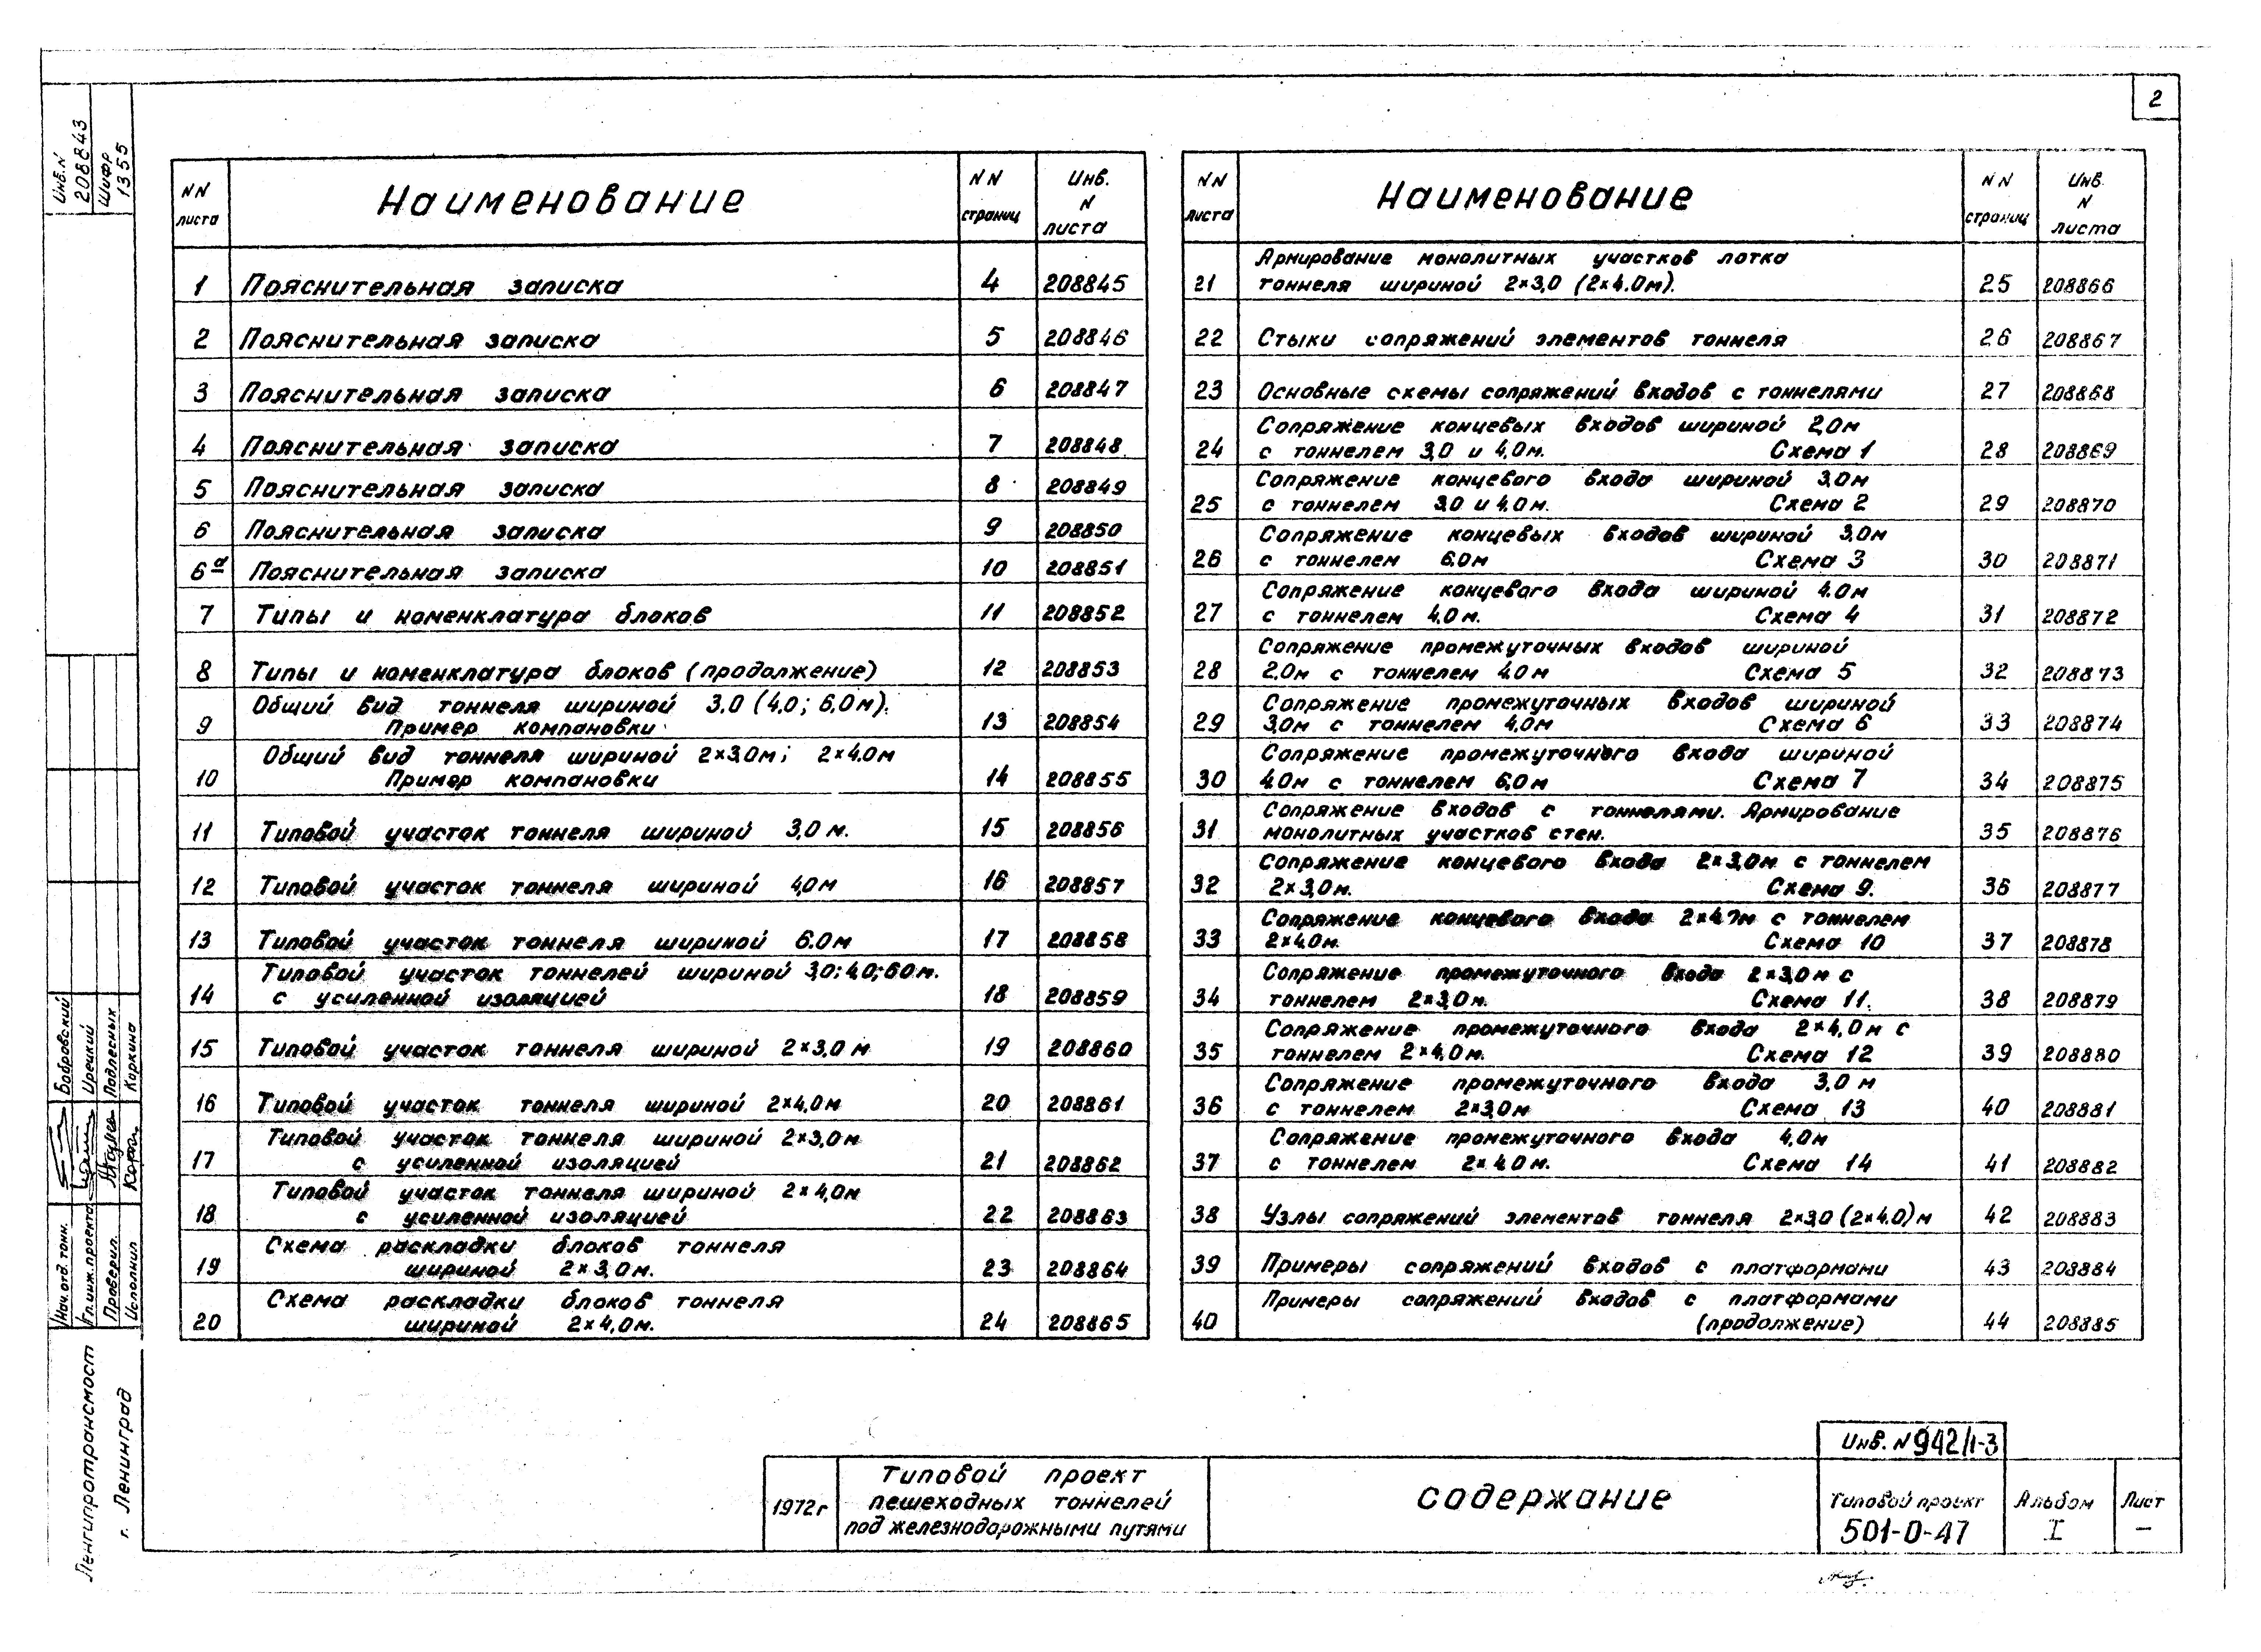 2
Инв. N
208843
Шифр
1355
NN листа Наименование NN страниц Инв. N листа
1 Пояснительная записка 4 208845
2 Пояснительная записка 5 208846
3 Пояснительная записка 6 208847
4 Пояснительная записка 7 208848
5 Пояснительная записка 8 208849
6 Пояснительная записка 9 208850
6а Пояснительная записка 10 208851
7 Типы и номенклатура блоков 11 208852
8 Типы и номенклатура блоков (продолжение) 12 208853
Общий вид тоннеля шириной 3.0 (4,0; 6,0м).
9 Пример компановки 13 208854
Общий вид тоннеля шириной 2×3,0м; 2×4.0м
10 Пример компановки 14 208855
11 Типовой участок тоннеля шириной 3,0 м. 15 208856
12 Типовой участок тоннеля шириной 4,0м 16 208857
13 Типовой участок тоннеля шириной 6.0м 17 208858
Типовой участок тоннелей шириной 3,0; 4,0; 6,0 м.
14 с усиленной изоляцией 18 208859
15 Типовой участок тоннеля шириной 2×3,0 м 19 208860
16 Типовой участок тоннеля шириной 2×4,0м 20 208861
Типовой участок тоннеля шириной 2×3,0м
17 с усиленной изоляцией 21 208862
Типовой участок тоннеля шириной 2×4,0м
18 с усиленной изоляцией 22 208863
Схема раскладки блоков тоннеля
19 шириной 2×3,0м. 23 208864
Схема раскладки блоков тоннеля
20 шириной 2×4,0м. 24 208865
NN листа Наименование NN страниц Инв. N листа
Армирование монолитных участков лотка
21 тоннеля шириной 2×3,0 (2×4.0м). 25 208866
22 Стыки сопряжений элементов тоннеля 26 208867
23 Основные схемы сопряжений входов с тоннелями 27 208868
Сопряжение концевых входов шириной 2,0м
24 с тоннелем 3,0 и 4,0м. Схема 1 28 208869
Сопряжение концевого входа шириной 3,0м
25 с тоннелем 3,0 и 4,0м. Схема 2 29 208870
Сопряжение концевых входов шириной 3,0м
26 с тоннелем 6.0м Схема 3 30 208871
Сопряжение концевого входа шириной 4.0м
27 с тоннелем 4,0м. Схема 4 31 208872
Сопряжение промежуточных входов шириной
28 2.0м с тоннелем 4.0м Схема 5 32 208873
Сопряжение промежуточных входов шириной
29 3,0м с тоннелем 4,0м Схема 6 33 208874
Сопряжение промежуточного входа шириной
30 4.0м с тоннелем 6,0м Схема 7 34 208875
Сопряжение входов с тоннелями. Армирование
31 монолитных участков стен. 35 208876
Сопряжение концевого входа 2×3,0м с тоннелем
32 2×3,0м. Схема 9. 36 208877
Сопряжение концевого входа с тоннелем
33 2×4.0м. Схема 10 37 208878
Сопряжение промежуточного входа 2×3,0м с
34 тоннелем 2×3,0м. Схема 11. 38 208879
Сопряжение промежуточного входа 2×4,0м с
35 тоннелем 2×4,0м. Схема 12 39 208880
Сопряжение промежуточного входа 3,0 м
36 с тоннелем 2×3,0м Схема 13 40 208881
Сопряжение промежуточного входа 4,0м
37 с тоннелем 2×4.0м. Схема 14 41 208882
38 Узлы сопряжений элементов тоннеля 2×3,0 (2×4.0)м 42 208883
39 Примеры сопряжений входов с платформами 43 208884
Примеры сопряжений входов с платформами
40 (продолжение) 44 208885
Нач. отд. тонн. Бобровский
Гл. инж. проекта Урецкий
Проверил. Подлесных
Исполнил Коркина
Ленгипротрансмост
г. Ленинград
1972г
Типовой проект
пешеходных тоннелей
под железнодорожными путями
содержание
Инв. N 942/1-3
Типовой проект
501-0-47
Альбом
I
Лист
—